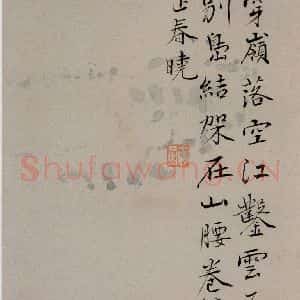 穿嶺落空江鑿雲
別島結架在山腰卷
春曉
Shufawang.CN